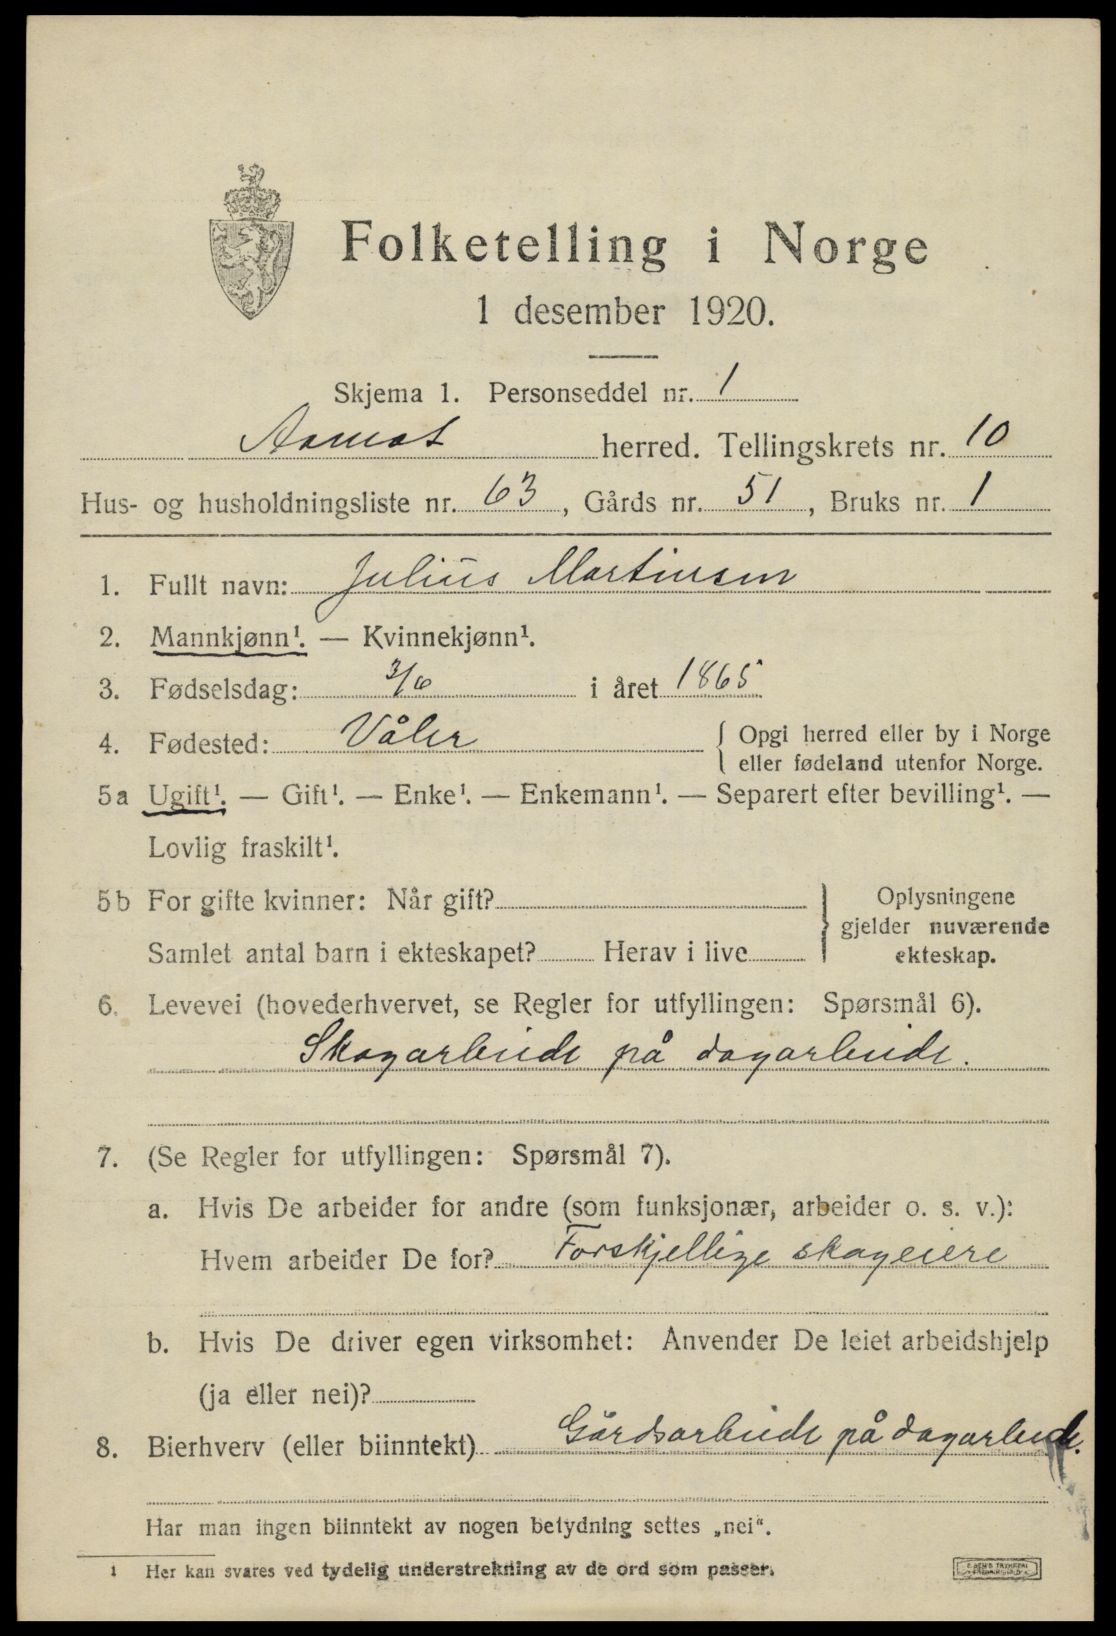 Folketelling i Norge
1 desember 1920.
Skjema 1. Personseddel nr. 1
Aamot herred. Tellingskrets nr. 10
Hus- og husholdningsliste nr. 63, Gårds nr. 51, Bruks nr. 1
1. Fullt navn: Julius Martinsen
2. Mannkjønn¹. — Kvinnekjønn¹.
3. Fødselsdag: 3/6 i året 1865
4. Fødested: Våler { Opgi herred eller by i Norge
eller fødeland utenfor Norge.
5a Ugift¹. — Gift¹. — Enke¹. — Enkemann¹. — Separert efter bevilling¹. —
Lovlig fraskilt¹.
5b For gifte kvinner: Når gift? } Oplysningene
gjelder nuværende
Samlet antal barn i ekteskapet? Herav i live ekteskap.
6. Levevei (hovederhvervet, se Regler for utfyllingen: Spørsmål 6).
Skogarbeide på dagarbeide.
7. (Se Regler for utfyllingen: Spørsmål 7).
a. Hvis De arbeider for andre (som funksjonær, arbeider o. s. v.):
Hvem arbeider De for? Forskjellige skogeiere
b. Hvis De driver egen virksomhet: Anvender De leiet arbeidshjelp
(ja eller nei)?
8. Bierhverv (eller biinntekt) Gårdsarbeide på dagarbeide.
Har man ingen biinntekt av nogen betydning settes „nei“.
¹ Her kan svares ved tydelig understrekning av de ord som passer.